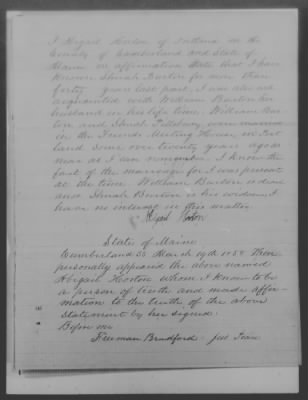 I Abigail Horton of Portland in the
County of Cumberland and State of
Maine on affirmation state that I have
known Sarah Burton for more than
forty years last past. I was also
acquainted with William Burton her
husband in his life time. William Bur-
ton and Sarah were married
in the Friends Meeting House in Port
land some over twenty years ago as
near as I can remember. I know the
fact of the marriage for I was present
at the time. William Burton is dead
and Sarah Burton is his widow. I
have no interest in this matter
Abigail Horton
State of Maine
Cumberland SS March 19th 185 Then
personally appeared the above named
Abigail Horton whom I know to be
a person of truth and made affir-
mation to the truth of the above
statement by her signed.
Before me
Freeman Bradford Just Peace